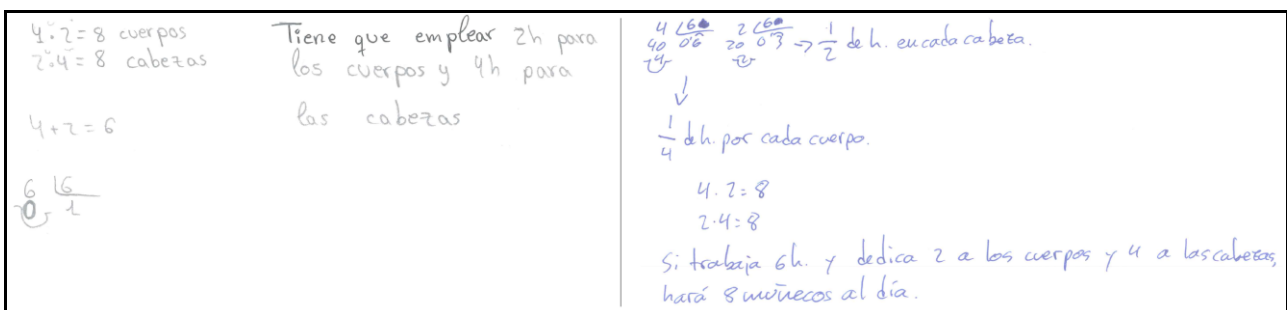 4·2 = 8 cuerpos
2·4 = 8 cabezas
4+2 = 6
6 |6
0 1
Tiene que emplear 2h para
los cuerpos y 4h para
las cabezas
4 |60 2 |60
40 0'6 20 0'3 → 1/2 de h. en cada cabeza.
4 2
↓
1/4 de h. por cada cuerpo.
4·2=8
2·4=8
Si trabaja 6h. y dedica 2 a los cuerpos y 4 a las cabezas,
hará 8 muñecos al día.